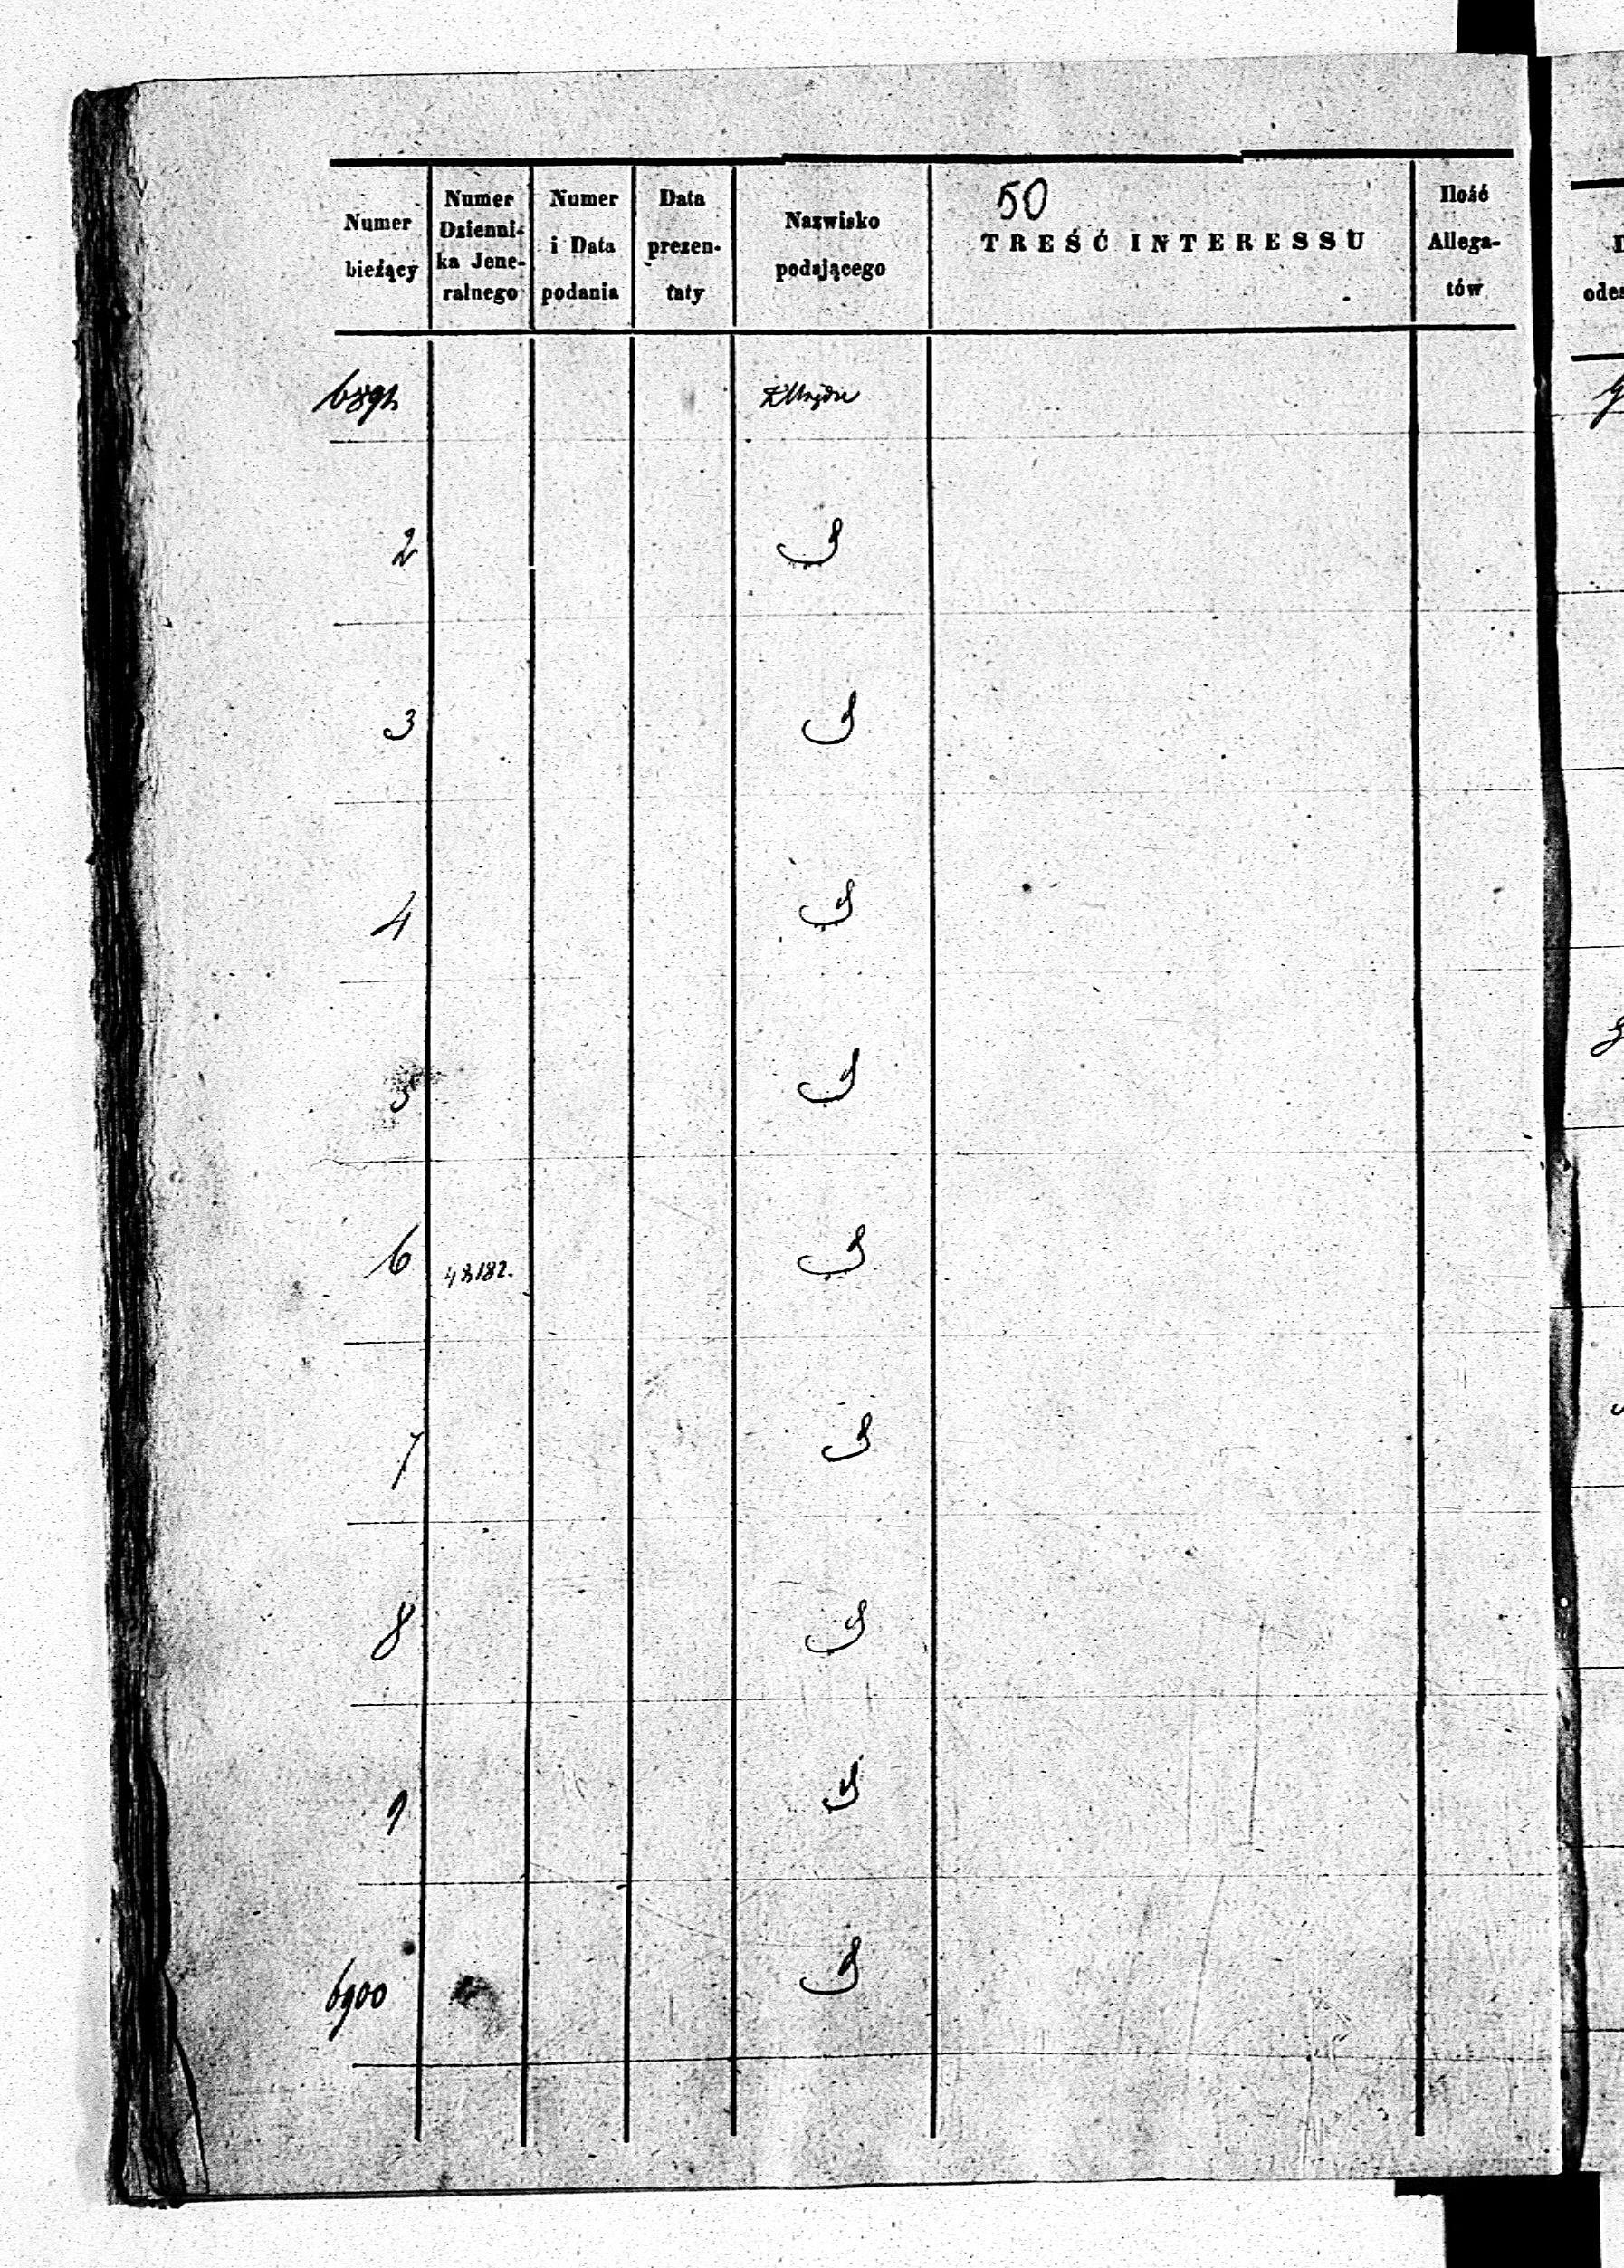 50
Numer bieżący
Numer Dzienni-ka Jene-ralnego
Numer i Data podania
Data prezen-taty
Nazwisko podającego
TREŚĆ INTERESSU
Ilość Allega-tów
6891
2
3
4
5
6 48182.
7
8
9
6900